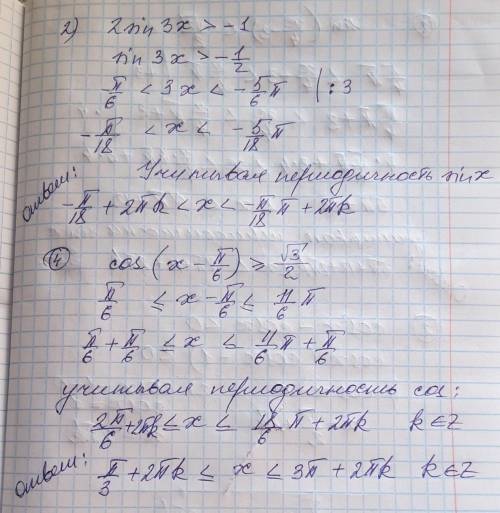 2) 2 sin 3x > -1
sin 3x > -1/2
π/6 < 3x < -5/6 π | : 3
-π/18 < x < -5/18 π
Учитывая периодичность sin x
ответ: -π/18 + 2πk < x < -π/18 π + 2πk
④ cos (x - π/6) ≥ √3/2
π/6 ≤ x - π/6 ≤ 11/6 π
π/6 + π/6 ≤ x ≤ 11/6 π + π/6
учитывая периодичность cos:
2π/6 + 2πk ≤ x ≤ 18/6 π + 2πk k ∈ Z
ответ: π/3 + 2πk ≤ x ≤ 3π + 2πk k ∈ Z